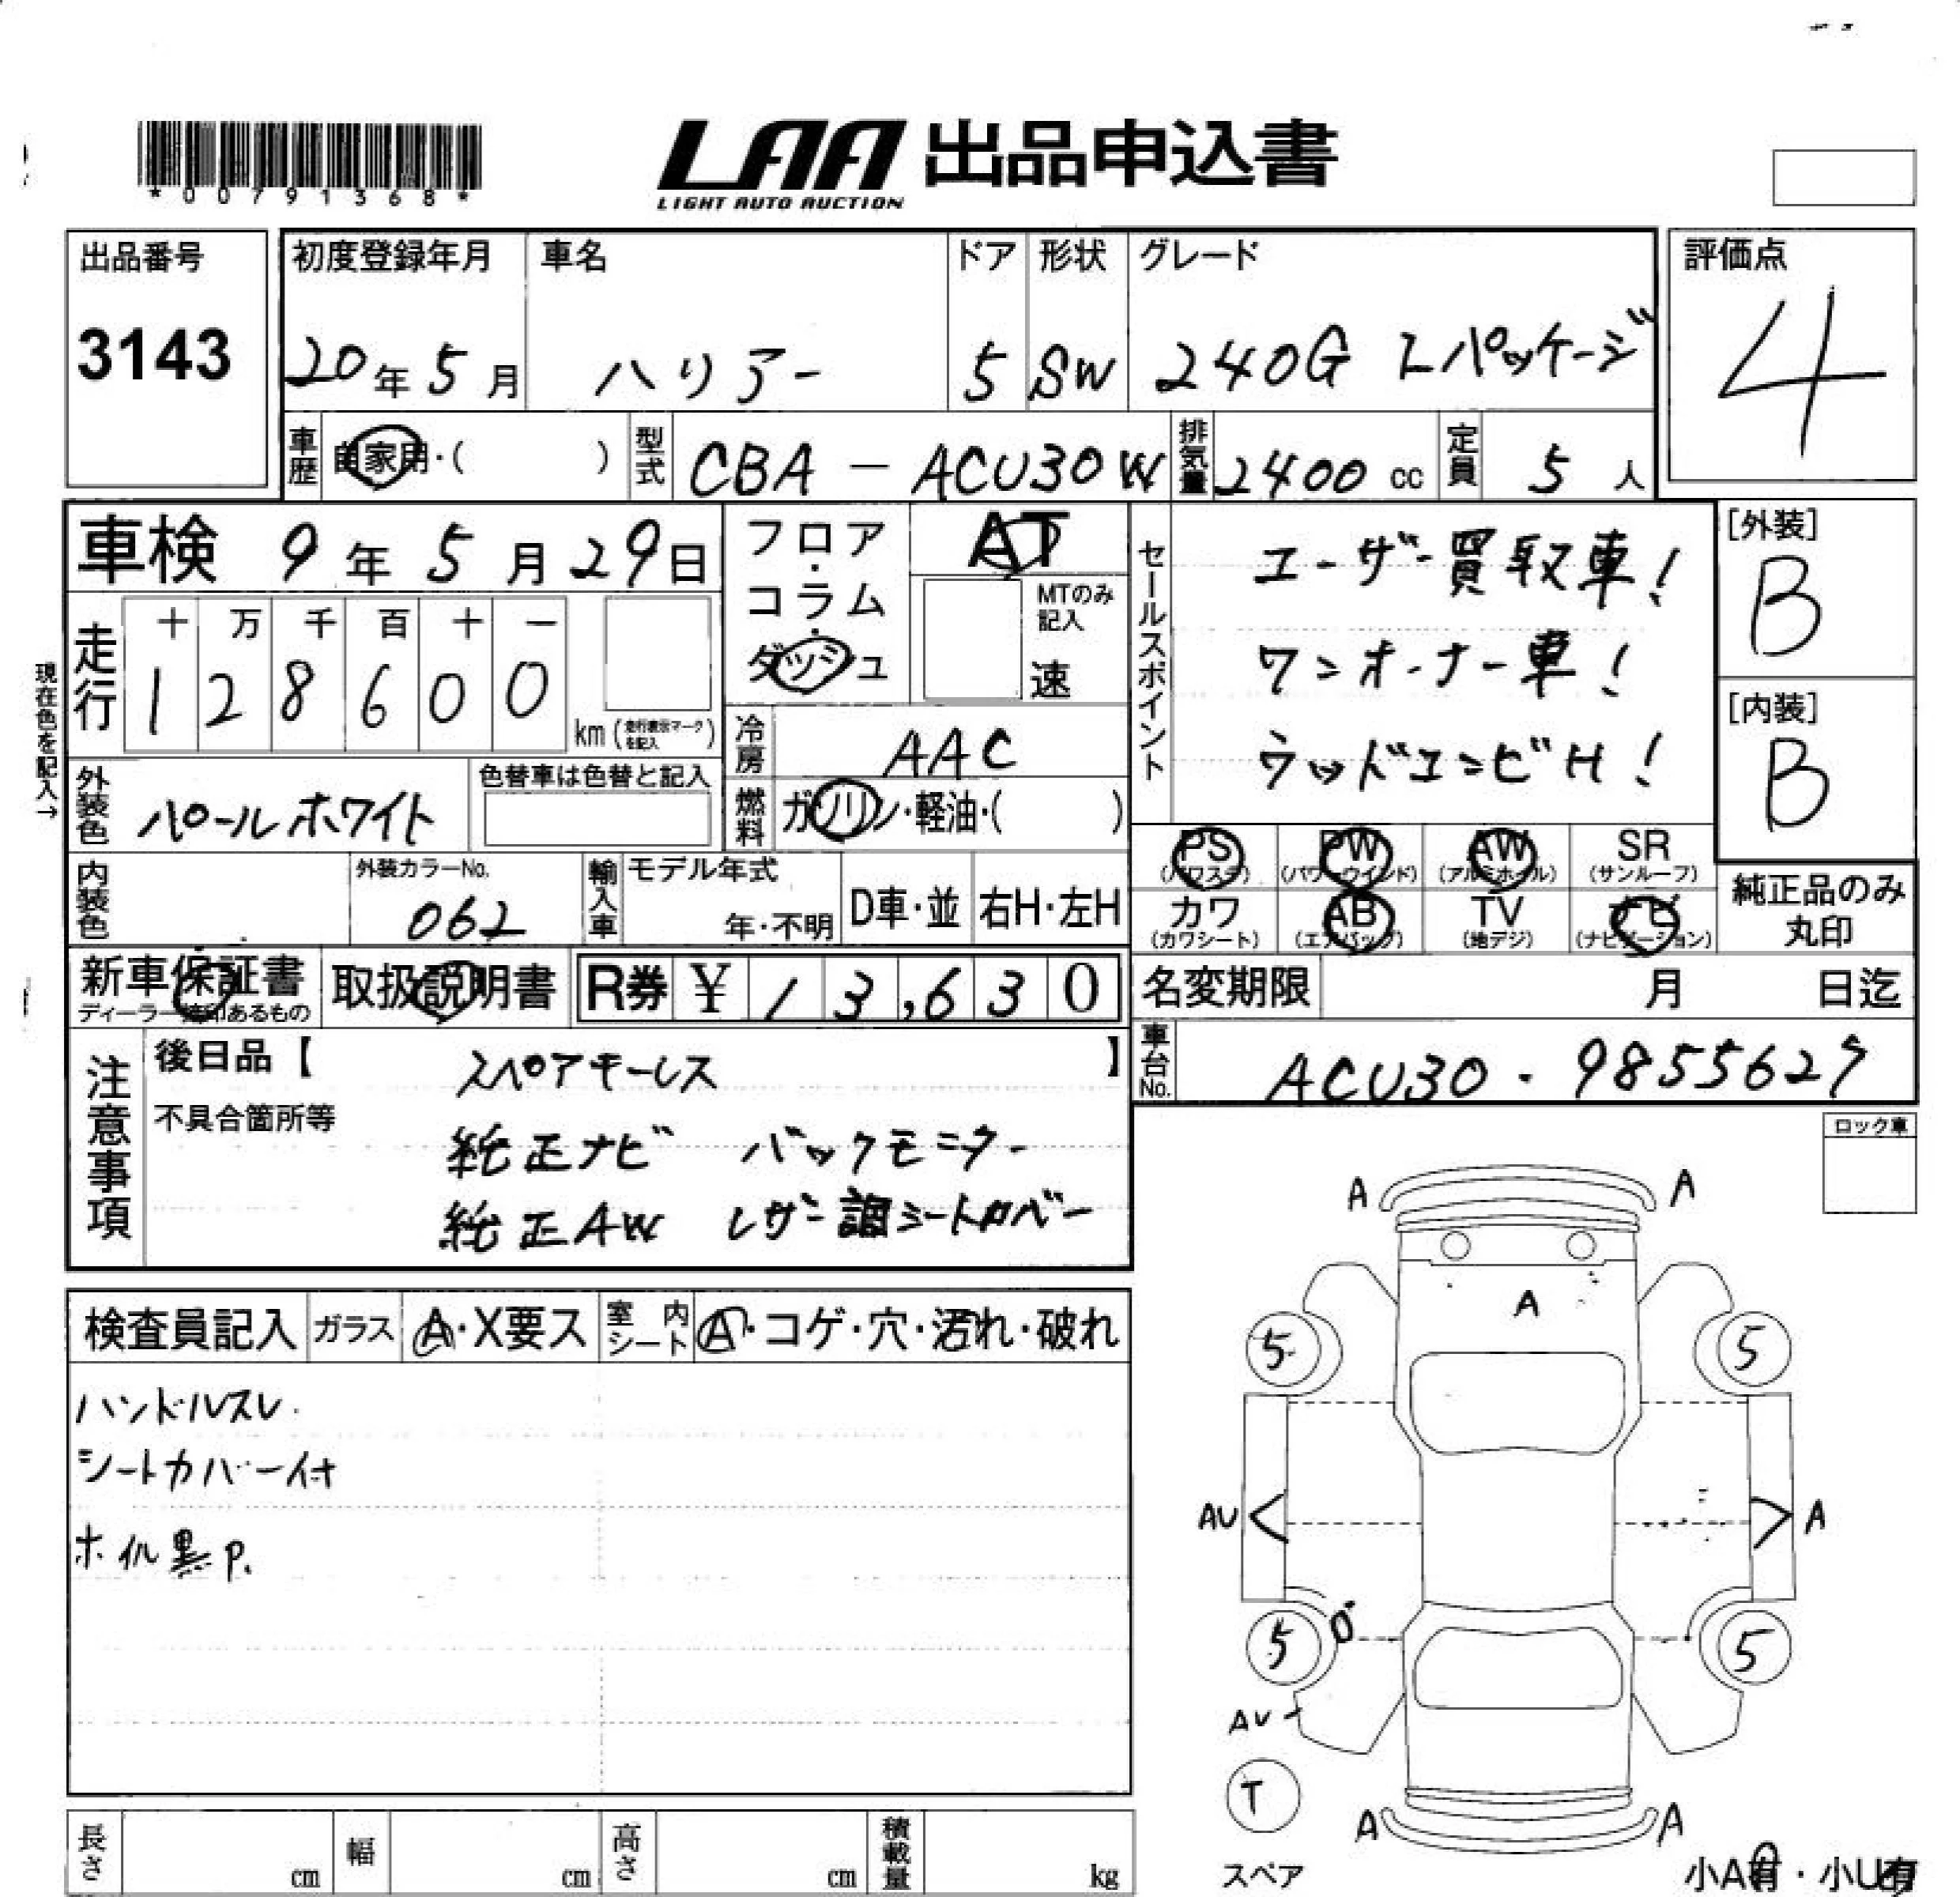 *00791368*
LAA 出品申込書
LIGHT AUTO AUCTION
出品番号
3143
初度登録年月
20年5月
車名
ハリアー
ドア
5
形状
SW
グレード
240G Lパッケージ
評価点
4
車歴 自家用・( )
型式 CBA-ACU30W
排気量 2400 cc
定員 5人
車検 9年5月29日
フロア・コラム・ダッシュ
AT
MTのみ記入
速
セールスポイント
ユーザー買取車!
ワンオーナー車!
ウッドコンビH!
[外装]
B
[内装]
B
現在色を記入→
走行
十 万 千 百 十 一
1 2 8 6 0 0
km (走行表示マークを記入)
冷房 AAC
燃料 ガソリン・軽油・( )
外装色 パールホワイト
色替車は色替と記入
内装色
外装カラーNo.
062
輸入車
モデル年式
年・不明
D車・並
右H・左H
PS
(パワステ)
PW
(パワーウインド)
AW
(アルミホイル)
SR
(サンルーフ)
カワ
(カワシート)
AB
(エアバッグ)
TV
(地デジ)
ナビ
(ナビゲーション)
純正品のみ
丸印
新車保証書
取扱説明書
R券 ¥ 13,630
名変期限 月 日迄
車台No. ACU30-9855627
注意事項
後日品【 スペアキーレス 】
不具合箇所等
純正ナビ バックモニター
純正AW レザー調シートカバー
ロック車
検査員記入
ガラス A・X要ス
室内シート A・コゲ・穴・汚れ・破れ
ハンドルスレ.
シートカバー付
ホイル黒P.
A A
A
5 5
AU A
5 5
AU
T
スペア
A A
小A有・小U有
長さ cm
幅 cm
高さ cm
積載量 kg